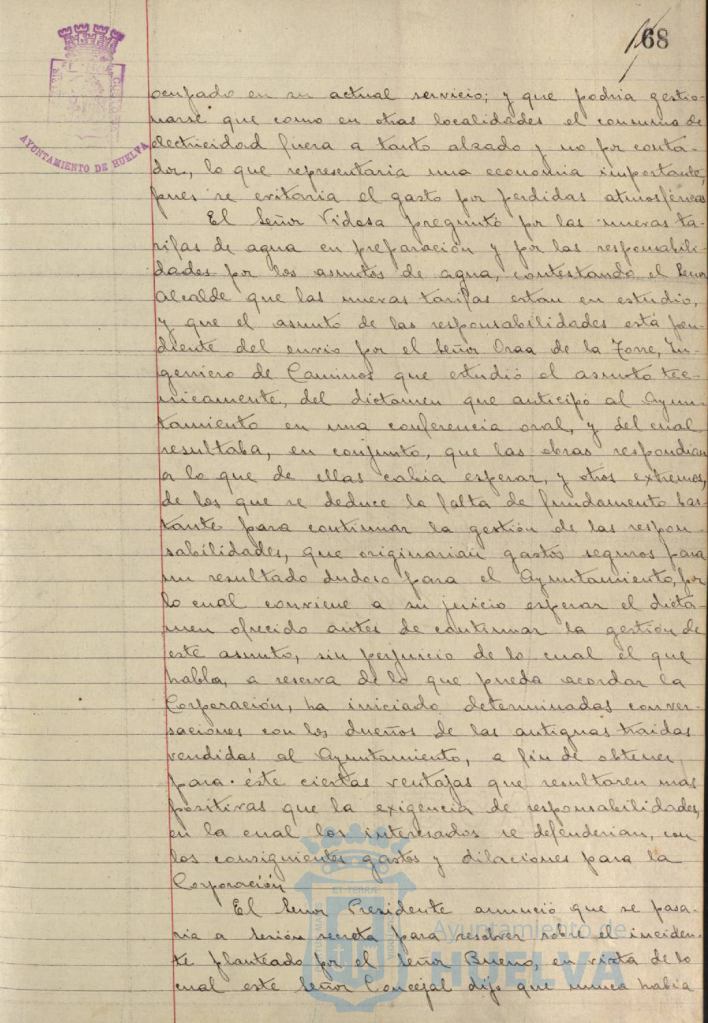 68
AYUNTAMIENTO DE HUELVA
ocupado en su actual servicio; y que podria gestio-
narse que como en otras localidades el consumo de
electricidad fuera a tanto alzado y no por conta-
dor, lo que representaria una economia importante,
pues se evitaria el gasto por perdidas atmosféricas
El Señor Vidosa preguntó por las nuevas ta-
rifas de agua en preparación y por las responsabili-
dades por los asuntos de agua, contestando el Señor
Alcalde que las nuevas tarifas estan en estudio,
y que el asunto de las responsabilidades está pen-
diente del envio por el Señor Oraa de la Torre, In-
geniero de Caminos que estudió el asunto tec-
nicamente, del dictamen que anticipó al Ayun-
tamiento en una conferencia oral, y del cual
resultaba, en conjunto, que las obras respondian
a lo que de ellas cabia esperar, y otros extremos,
de los que se deduce la falta de fundamento bas-
tante para continuar la gestión de las respon-
sabilidades, que originarian gastos seguros para
un resultado dudoso para el Ayuntamiento, por
lo cual conviene a su juicio esperar el dicta-
men ofrecido antes de continuar la gestión de
este asunto, sin perjuicio de lo cual el que
habla, a reserva de lo que pueda acordar la
Corporación, ha iniciado determinadas conver-
saciones con los dueños de las antiguas traidas
vendidas al Ayuntamiento, a fin de obtener
para éste ciertas ventajas que resultaren mas
positivas que la exigencia de responsabilidades,
en la cual los interesados se defenderian, con
los consiguientes gastos y dilaciones para la
Corporación
El Señor Presidente anunció que se pasa-
ria a sesión secreta para resolver sobre el inciden-
te planteado por el Señor Bueno, en vista de lo
cual este Señor Concejal dijo que nunca habia
Ayuntamiento de
HUELVA